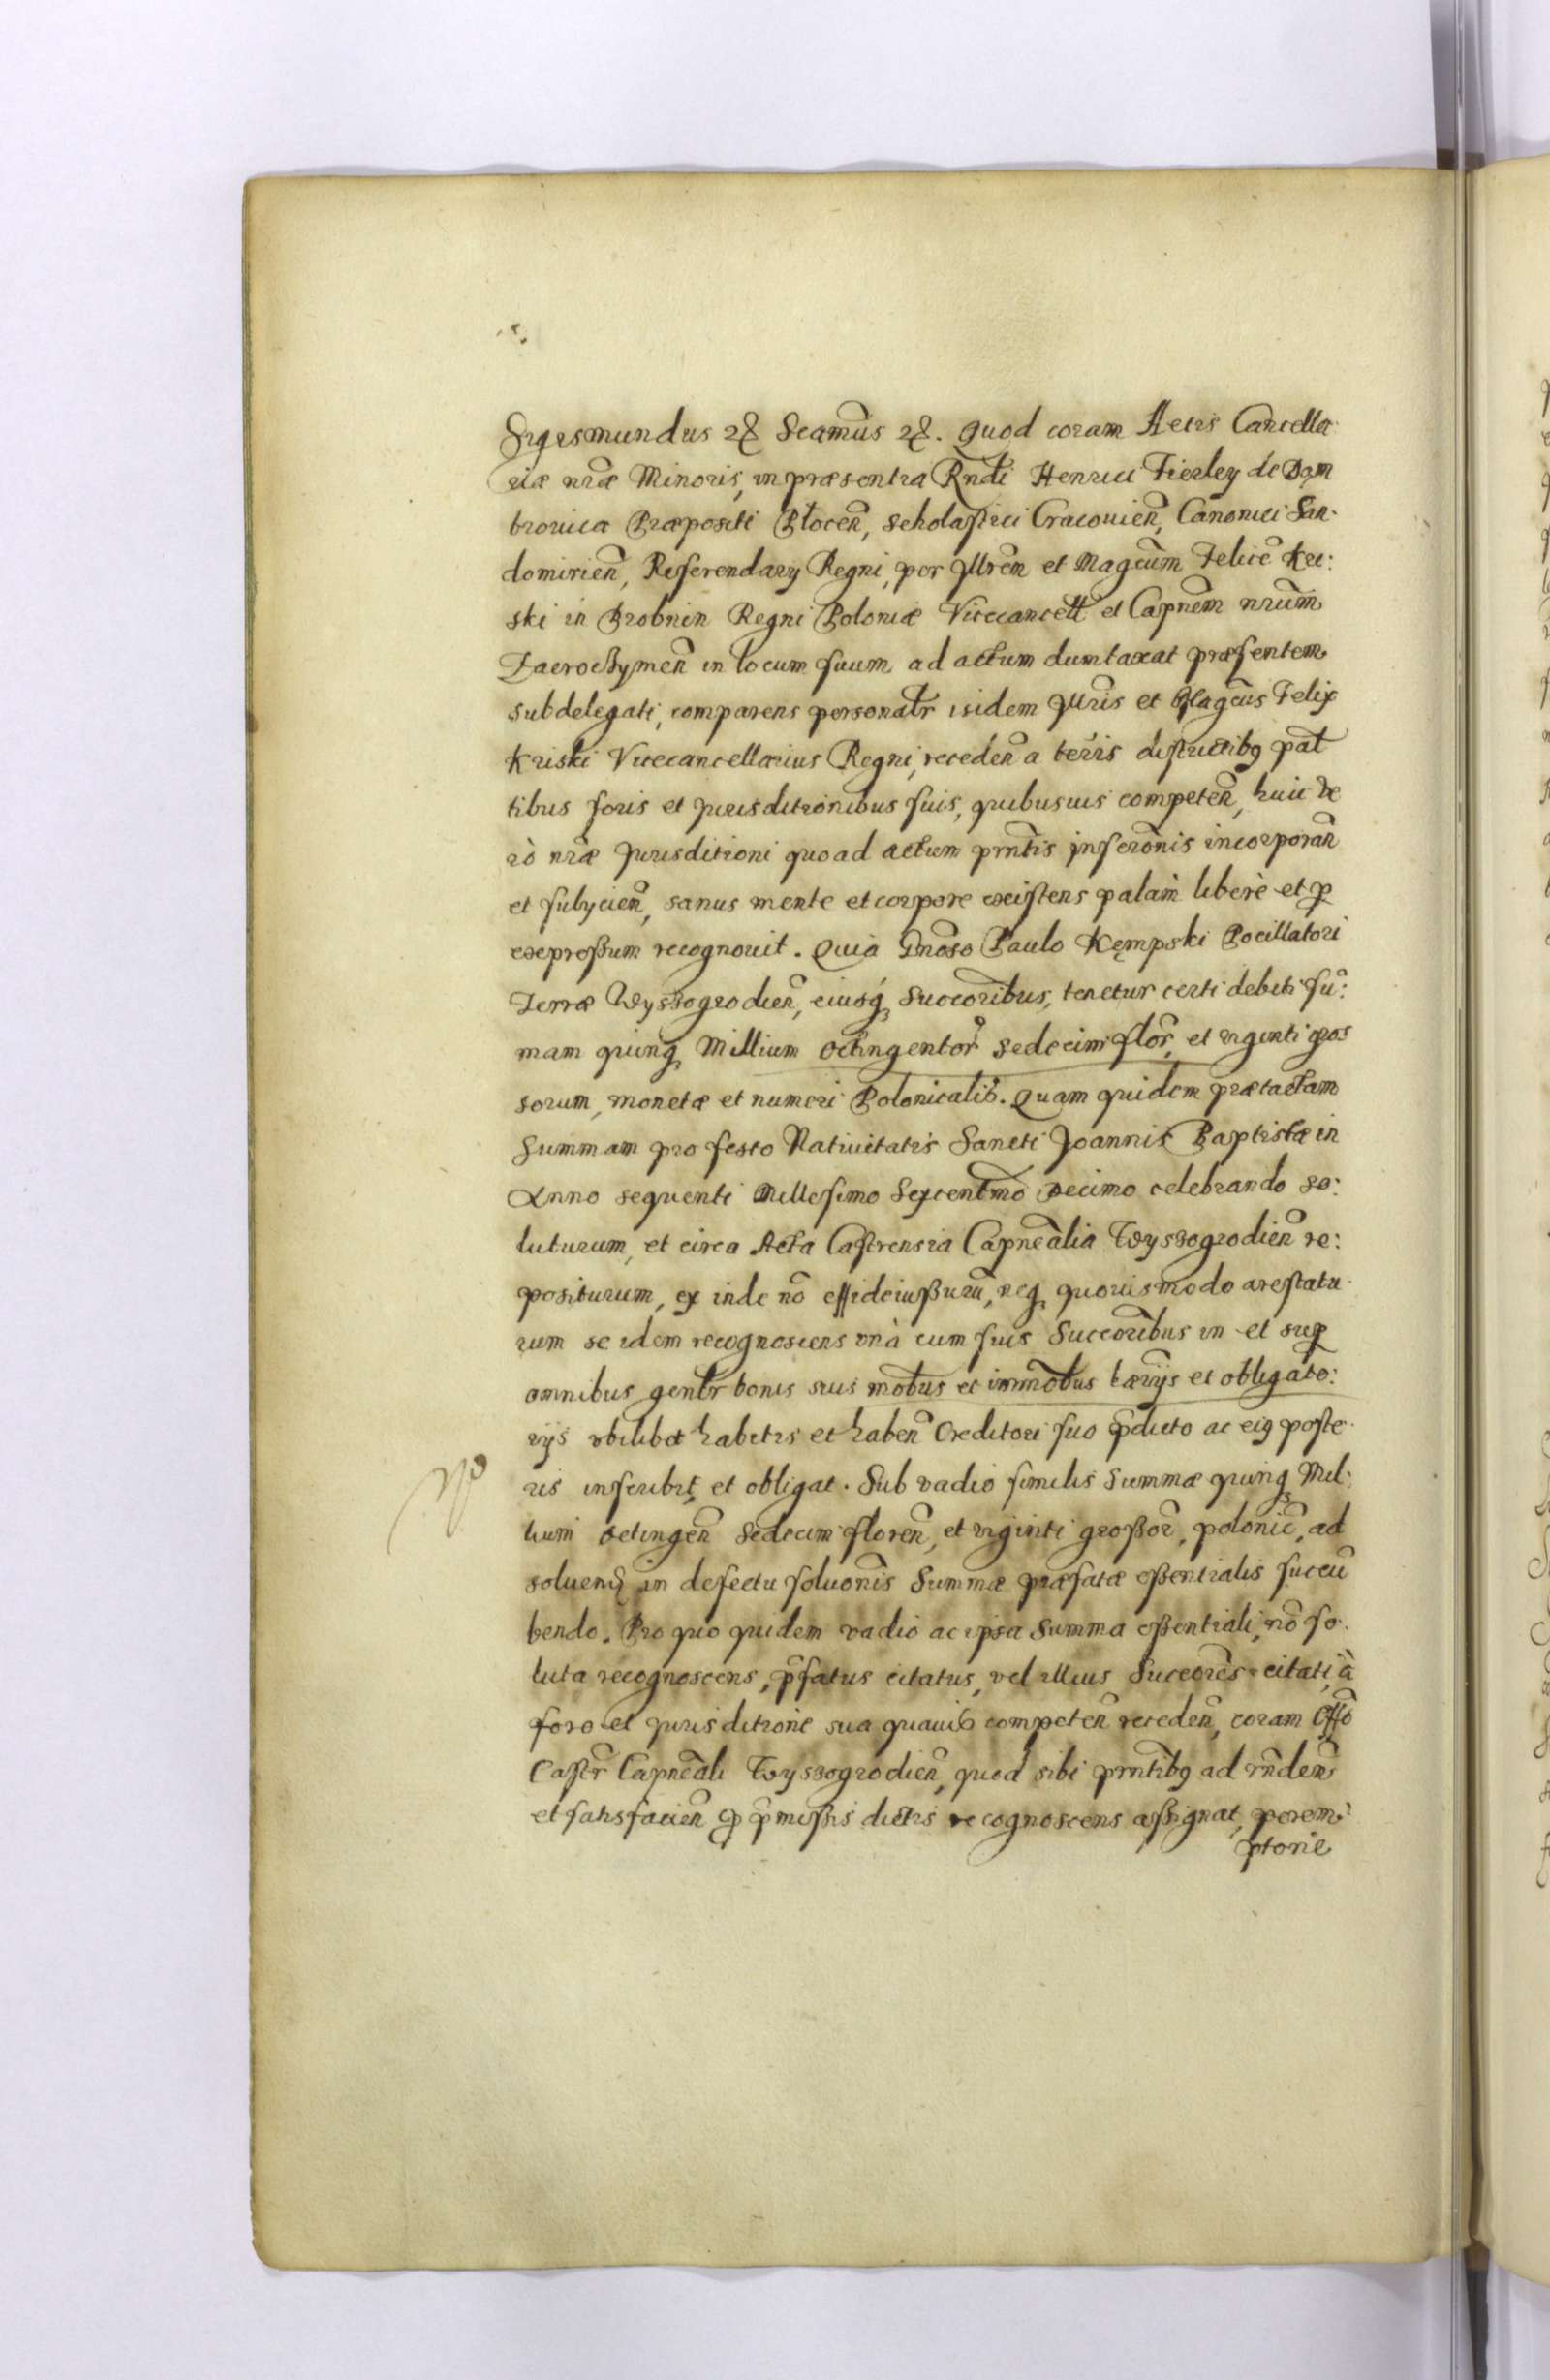 Sigismundus &c. Scamus &c. Quod coram Actis Cancella
riæ nræ Minoris, in præsentia Rndi Henrici Fierley de Dąm
browica Præpositi Plocen, Scholastici Cracouien, Canonici San-
domirien, Referendarij Regni, per Illrem et Magcum Felicē Kri:
ski in Drobnin Regni Poloniæ Vicecancell et Capnem nrum
Zacroczymen in locum suum ad actum dumtaxat præsentem
subdelegati, comparens personalr isidem Illris et Magcus Felix
Kriski Vicecancellarius Regni, receden a terris districtibq palt
tibus foris et Jurisditionibus suis, quibusuis competen, huic ve
rò nræ Jurisditioni quo ad actum prntis Inscronis incorporan
et subijcien, sanus mente et corpore existens palam liberè et p
expressum recognouit. Quia Gnoso Paulo Kępski Pocillatori
Terræ Wyszogrodien, eiusq Succoribus, tenetur certi debiti su:
mam quinq Millium octingentor sedecim flor, et viginti gros
sorum, monetæ et numeri Polonicalis. Quam quidem prætactam
Summam pro festo Natiuitatis Sancti Joannis Baptistæ in
Anno sequenti Millesimo Sexcentmo Decimo celebrando so:
luturum, et circa Acta Castrensia Capnealia Wyszogrodien re:
positurum, ex inde nō effideiussurū, neq quouismodo arestatu
rum se idem recognoscens vnà cum suis Succoribus in et sup
omnibus genlr bonis suis mobus et immobus tærijs et obligato:
rijs vbilibet habitis et haben Creditori suo pdicto ac eiq poste
ris inscribit et obligat. Sub vadio similis Summæ quinq Mil:
lium octingen Sedecim floren, et viginti grossor, polonic, ad
soluend in defectu soluonis Summæ præfatæ essentialis succū
bendo. Pro quo quidem vadio ac ipsa Summa essentiali, nō so.
luta recognoscens, pfatus citatus, vel illius Succores citati, à
foro et Jurisditione sua quauis competen receden, coram Offo
Castr Capneali Wyszogrodien, quod sibi prntibq ad rnden
et satisfacien p pmissis dictis recognoscens assignat, perem
ptoriè